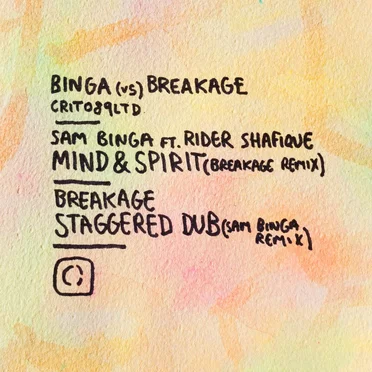 BINGA (vs) BREAKAGE
CRIT089LTD
SAM BINGA FT. RIDER SHAFIQUE
MIND & SPIRIT (BREAKAGE REMIX)
BREAKAGE
STAGGERED DUB (SAM BINGA
REMIX)